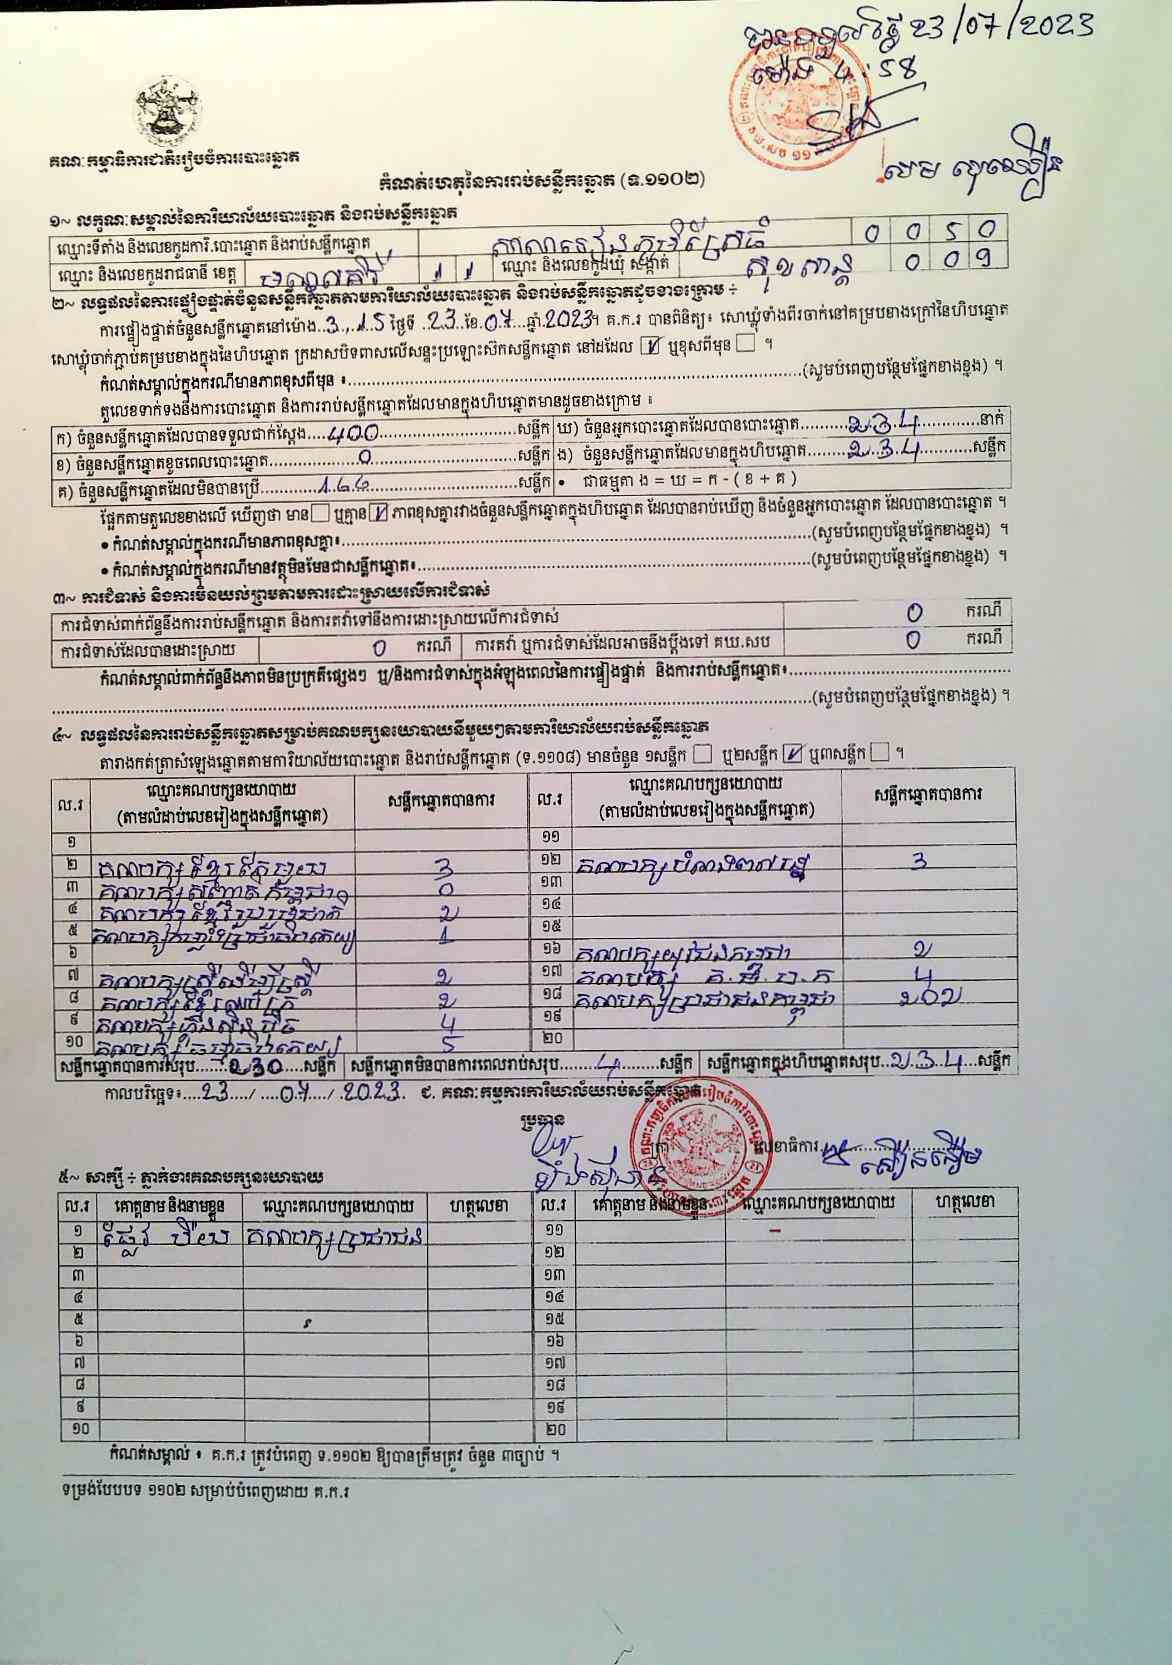 បានទទួលថ្ងៃទី 23/07/2023
ម៉ោង 4:58
គណៈកម្មាធិការជាតិរៀបចំការបោះឆ្នោត
កំណត់ហេតុនៃការរាប់សន្លឹកឆ្នោត (ទ.១១០២)
១~ លក្ខណៈសម្គាល់នៃការិយាល័យបោះឆ្នោត និងរាប់សន្លឹកឆ្នោត
ឈ្មោះទីតាំង និងលេខកូដការិ.បោះឆ្នោត និងរាប់សន្លឹកឆ្នោត 0 0 5 0
ឈ្មោះ និងលេខកូដរាជធានី ខេត្ត មណ្ឌលគិរី 1 1 ឈ្មោះ និងលេខកូដឃុំ សង្កាត់ 0 0 9
២~ លទ្ធផលនៃការផ្ទៀងផ្ទាត់ចំនួនសន្លឹកឆ្នោតតាមការិយាល័យបោះឆ្នោត និងរាប់សន្លឹកឆ្នោតដូចខាងក្រោម ÷
ការផ្ទៀងផ្ទាត់ចំនួនសន្លឹកឆ្នោតនៅម៉ោង..3..15 ថ្ងៃទី ..23.ខែ.07..ឆ្នាំ.2023។ គ.ក.រ បានពិនិត្យ៖ សោឃ្លុំទាំងពីរចាក់នៅគម្របខាងក្រៅនៃហិបឆ្នោត
សោឃ្លុំចាក់ភ្ជាប់គម្របខាងក្នុងនៃហិបឆ្នោត ក្រដាសបិទពាសលើសន្ទះប្រឡោះស៊កសន្លឹកឆ្នោត នៅដដែល ☑ ឬខុសពីមុន ☐ ។
កំណត់សម្គាល់ក្នុងករណីមានភាពខុសពីមុន ៖..........(សូមបំពេញបន្ថែមផ្នែកខាងខ្នង) ។
តួលេខទាក់ទងនឹងការបោះឆ្នោត និងការរាប់សន្លឹកឆ្នោតដែលមានក្នុងហិបឆ្នោតមានដូចខាងក្រោម ៖
ក) ចំនួនសន្លឹកឆ្នោតដែលបានទទួលជាក់ស្តែង....400..........សន្លឹក ឃ) ចំនួនអ្នកបោះឆ្នោតដែលបានបោះឆ្នោត..........234..........នាក់
ខ) ចំនួនសន្លឹកឆ្នោតខូចពេលបោះឆ្នោត..........0..........សន្លឹក ង) ចំនួនសន្លឹកឆ្នោតដែលមានក្នុងហិបឆ្នោត........234..........សន្លឹក
គ) ចំនួនសន្លឹកឆ្នោតដែលមិនបានប្រើ..........166..........សន្លឹក • ជាធម្មតា ង = ឃ = ក - ( ខ + គ )
ផ្អែកតាមតួលេខខាងលើ ឃើញថា មាន ☐ ឬគ្មាន ☑ ភាពខុសគ្នារវាងចំនួនសន្លឹកឆ្នោតក្នុងហិបឆ្នោត ដែលបានរាប់ឃើញ និងចំនួនអ្នកបោះឆ្នោត ដែលបានបោះឆ្នោត ។
• កំណត់សម្គាល់ក្នុងករណីមានភាពខុសគ្នា៖..........(សូមបំពេញបន្ថែមផ្នែកខាងខ្នង) ។
• កំណត់សម្គាល់ក្នុងករណីមានវត្ថុមិនមែនជាសន្លឹកឆ្នោត៖..........(សូមបំពេញបន្ថែមផ្នែកខាងខ្នង) ។
៣~ ការជំទាស់ និងការមិនយល់ព្រមតាមការដោះស្រាយលើការជំទាស់
ការជំទាស់ពាក់ព័ន្ធនឹងការរាប់សន្លឹកឆ្នោត និងការតវ៉ាទៅនឹងការដោះស្រាយលើការជំទាស់ 0 ករណី
ការជំទាស់ដែលបានដោះស្រាយ 0 ករណី ការតវ៉ា ឬការជំទាស់ដែលអាចនឹងប្តឹងទៅ គឃ.សប 0 ករណី
កំណត់សម្គាល់ពាក់ព័ន្ធនឹងភាពមិនប្រក្រតីផ្សេងៗ ឬ/និងការជំទាស់ក្នុងអំឡុងពេលនៃការផ្ទៀងផ្ទាត់ និងការរាប់សន្លឹកឆ្នោត៖..........
..........(សូមបំពេញបន្ថែមផ្នែកខាងខ្នង) ។
៤~ លទ្ធផលនៃការរាប់សន្លឹកឆ្នោតសម្រាប់គណបក្សនយោបាយនីមួយៗតាមការិយាល័យរាប់សន្លឹកឆ្នោត
តារាងកត់ត្រាសំឡេងឆ្នោតតាមការិយាល័យបោះឆ្នោត និងរាប់សន្លឹកឆ្នោត (ទ.១១០៨) មានចំនួន ១សន្លឹក ☐ ឬ២សន្លឹក ☑ ឬ៣សន្លឹក ☐ ។
ល.រ ឈ្មោះគណបក្សនយោបាយ (តាមលំដាប់លេខរៀងក្នុងសន្លឹកឆ្នោត) សន្លឹកឆ្នោតបានការ ល.រ ឈ្មោះគណបក្សនយោបាយ (តាមលំដាប់លេខរៀងក្នុងសន្លឹកឆ្នោត) សន្លឹកឆ្នោតបានការ
១ ១១
២ គណបក្ស ខ្មែរតែមួយ 3 ១២ គណបក្ស 3
៣ គណបក្ស 0 ១៣
៤ គណបក្ស ខ្មែររួបរួមជាតិ 2 ១៤
៥ គណបក្សកម្លាំងប្រជាធិបតេយ្យ 1 ១៥
៦ ១៦ គណបក្សយុវជនកម្ពុជា 2
៧ គណបក្សស្ត្រីដើម្បីស្ត្រី 2 ១៧ គណបក្ស 4
៨ គណបក្ស 2 ១៨ គណបក្សប្រជាជនកម្ពុជា 202
៩ គណបក្សហ៊្វុនស៊ិនប៉ិច 4 ១៩
១០ គណបក្ស 5 ២០
សន្លឹកឆ្នោតបានការសរុប......230....សន្លឹក សន្លឹកឆ្នោតមិនបានការពេលរាប់សរុប......4......សន្លឹក សន្លឹកឆ្នោតក្នុងហិបឆ្នោតសរុប..234...សន្លឹក
កាលបរិច្ឆេទ៖....23..../....07..../.2023. ជ. គណៈកម្មការការិយាល័យរាប់សន្លឹកឆ្នោត
ប្រធាន
លេខាធិការ
៥~ សាក្សី ÷ ភ្នាក់ងារគណបក្សនយោបាយ
ល.រ គោត្តនាម និងនាមខ្លួន ឈ្មោះគណបក្សនយោបាយ ហត្ថលេខា ល.រ គោត្តនាម និងនាមខ្លួន ឈ្មោះគណបក្សនយោបាយ ហត្ថលេខា
១ គណបក្សប្រជាជន ១១
២ ១២
៣ ១៣
៤ ១៤
៥ ១៥
៦ ១៦
៧ ១៧
៨ ១៨
៩ ១៩
១០ ២០
កំណត់សម្គាល់ ៖ គ.ក.រ ត្រូវបំពេញ ទ.១១០២ ឱ្យបានត្រឹមត្រូវ ចំនួន ៣ច្បាប់ ។
ទម្រង់បែបបទ ១១០២ សម្រាប់បំពេញដោយ គ.ក.រ